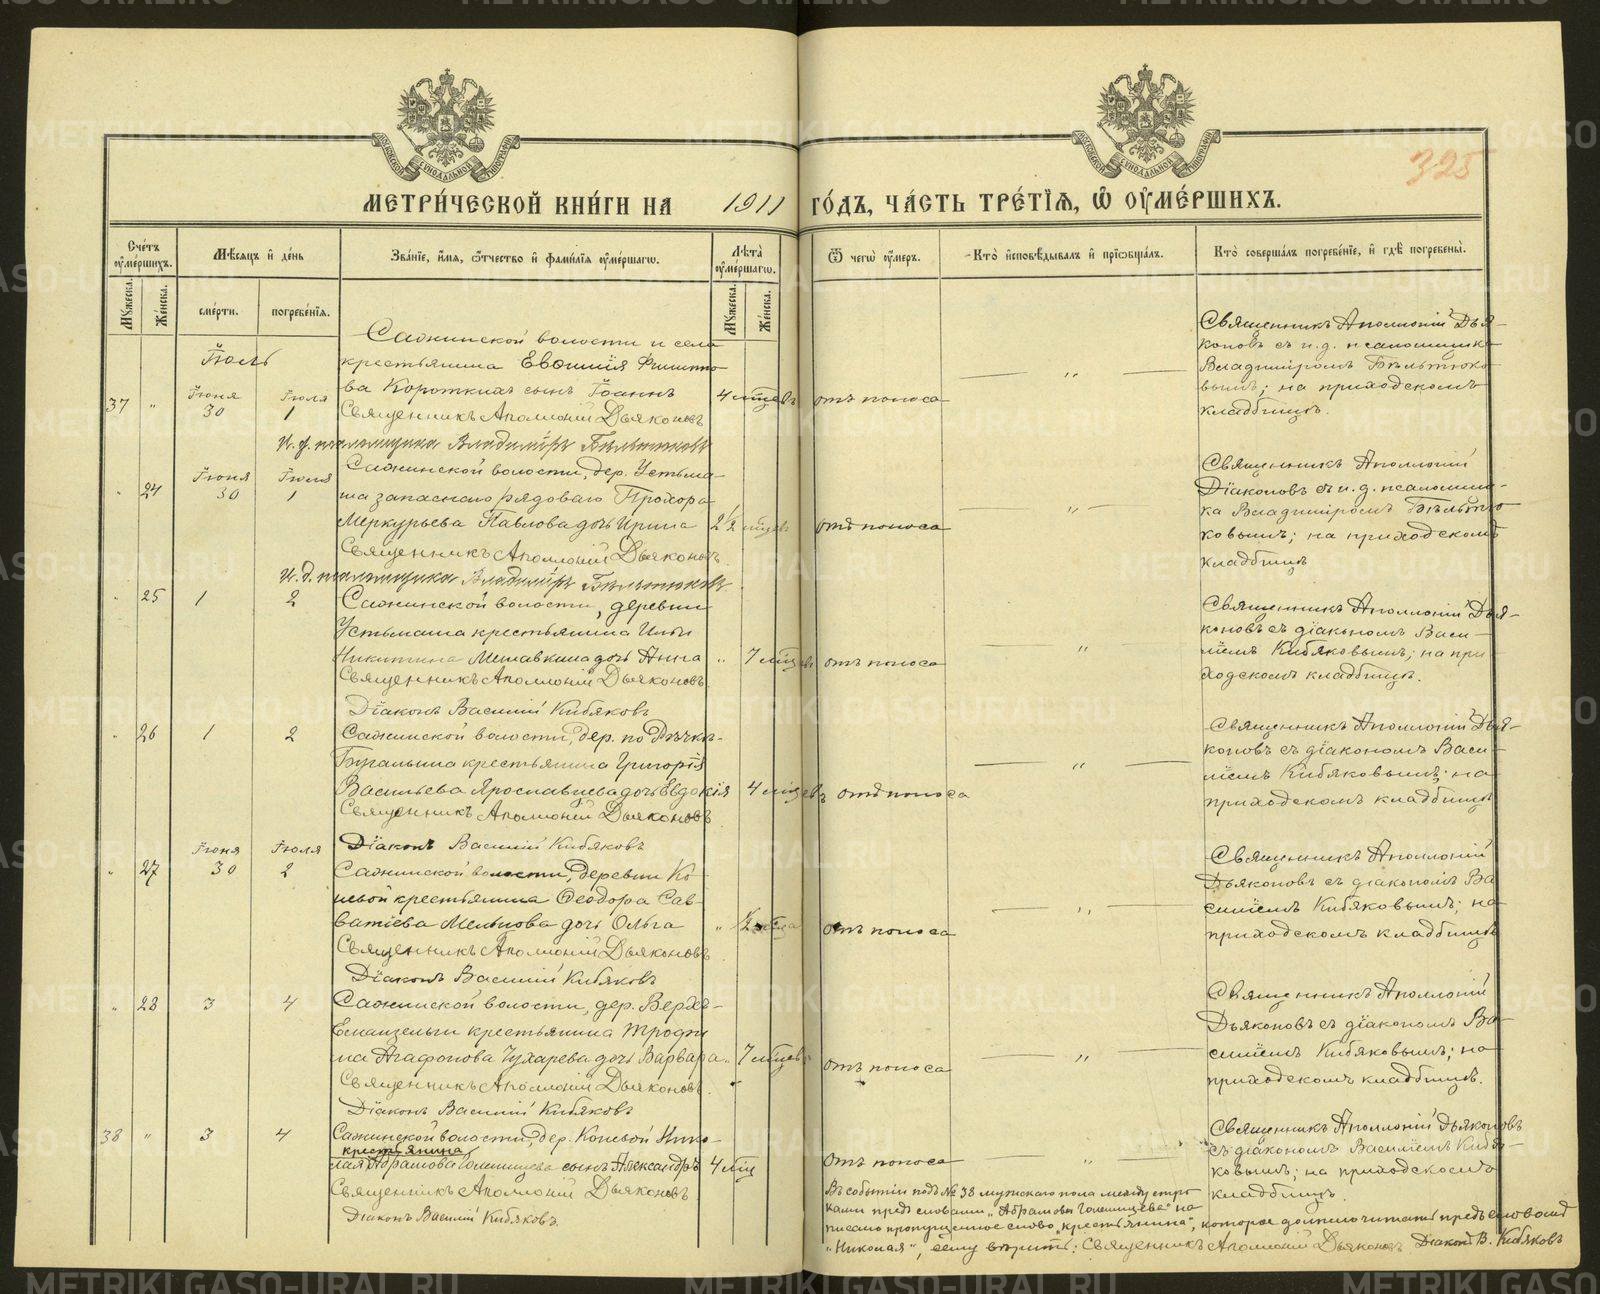 МЕТРИ́ЧЕСКОЙ КНИ́ГИ НА 1911 ГО́ДЪ, ЧА́СТЬ ТРЕ́ТІѦ, Ѽ ОУМЕ́РШИХЪ.
325
Сче́тъ оуме́ршихъ.
Му́жеска.
Же́нска.
Мѣ́сяцъ и҆ де́нь
сме́рти.
погребе́нїѧ.
Зва́нїе, и҆́мѧ, ѻ҆́тчество и҆ фами́лїѧ оуме́ршагѡ.
Лѣ́та̀ оуме́ршагѡ.
Му́жеска.
Же́нска.
Ѿ чегѡ̀ оу҆́меръ.
Кто̀ и҆сповѣ́дывалъ и҆ прїѡбща́лъ.
Кто̀ соверша́лъ погребе́нїе, и҆ гдѣ̀ погребены̀.
Іюль
37 „ Іюня 30 Іюля 1
Сажинской волости и села
крестьянина Евѳимія Филиппо-
ва Короткихъ сынъ Іоаннъ
4 мѣсцевъ отъ поноса
Священникъ Аполлоній Дьяконовъ
И. д. псаломщика Владиміръ Бѣльтюковъ
Священникъ Аполлоній Дья-
коновъ съ и. д. псаломщика
Владиміромъ Бѣльтюко-
вымъ; на приходскомъ
кладбищѣ.
„ 24 Іюня 30 Іюля 1
Сажинской волости, дер. Устьма-
ша запаснаго рядоваго Прохора
Меркурьева Павлова дочь Ирина
2 1/2 мѣсцевъ отъ поноса
Священникъ Аполлоній Дьяконовъ
И. д. псаломщика Владиміръ Бѣльтюковъ
Священникъ Аполлоній
Діаконовъ съ и. д. псаломщи-
ка Владиміромъ Бѣльтю-
ковымъ; на приходскомъ
кладбищѣ
„ 25 1 2
Сажинской волости, деревни
Устьмаша крестьянина Ильи
Никитина дочь Анна
„ 7 мѣсцевъ отъ поноса
Священникъ Аполлоній Дьяконовъ
Діаконъ Василій Кибяковъ
Священникъ Аполлоній Дья-
коновъ съ діакономъ Васи-
ліемъ Кибяковымъ; на при-
ходскомъ кладбищѣ.
„ 26 1 2
Сажинской волости, дер. по Рѣчкѣ-
Бугалышъ крестьянина Григорія
Васильева Ярославцева дочь Евдокія
4 мѣсцевъ отъ поноса
Священникъ Аполлоній Дьяконовъ
Діаконъ Василій Кибяковъ
Священникъ Аполлоній Дья-
коновъ съ діакономъ Васи-
ліемъ Кибяковымъ; на
приходскомъ кладбищѣ
„ 27 Іюня 30 Іюля 2
Сажинской волости, деревни Ко-
невой крестьянина Ѳеодора Сав-
ватіева дочь Ольга
„ 1/2 отъ поноса
Священникъ Аполлоній Дьяконовъ
Діаконъ Василій Кибяковъ
Священникъ Аполлоній
Дьяконовъ съ діакономъ Ва-
силіемъ Кибяковымъ; на
приходскомъ кладбищѣ
„ 28 3 4
Сажинской волости, дер. Верхъ-
крестьянина Трофи-
ма Агафонова Чухарева дочь Варвара
„ 7 мѣсцевъ отъ поноса
Священникъ Аполлоній Дьяконовъ
Діаконъ Василій Кибяковъ
Священникъ Аполлоній
Дьяконовъ съ діакономъ Ва-
силіемъ Кибяковымъ; на
приходскомъ кладбищѣ.
38 „ 3 4
Сажинской волости, дер. Коневой Нико-
крестьянина
лая Абрамова Голенищева сынъ Александръ
4 мѣс отъ поноса
Священникъ Аполлоній Дьяконовъ
Діаконъ Василій Кибяковъ.
Священникъ Аполлоній Дьяконовъ
съ діакономъ Василіемъ Кибя-
ковымъ; на приходскомъ
кладбищѣ.
Въ событіи подъ № 38 мужскаго пола между стро-
ками предъ словами „Абрамова Голенищева" на-
писано пропущенное слово „крестьянина", которое должно читать предъ словомъ
„Николая", сему вѣрить: Священникъ Аполлоній Дьяконовъ Діаконъ В. Кибяковъ
METRIKI.GASO-URAL.RU